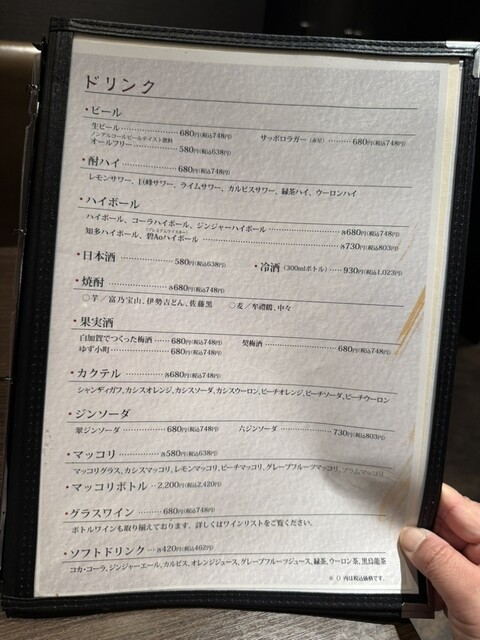 ドリンク
・ビール
生ビール……680円(税込748円) サッポロラガー(赤星)……680円(税込748円)
ノンアルコールビールテイスト飲料
オールフリー……580円(税込638円)
・酎ハイ……680円(税込748円)
レモンサワー、巨峰サワー、ライムサワー、カルピスサワー、緑茶ハイ、ウーロンハイ
・ハイボール
ハイボール、コーラハイボール、ジンジャーハイボール……各680円(税込748円)
知多ハイボール、碧Aoハイボール……各730円(税込803円)
・日本酒……580円(税込638円) ・冷酒(300mlボトル)……930円(税込1,023円)
・焼酎……各680円(税込748円)
○芋／富乃宝山、伊勢吉どん、佐藤黒 ○麦／牟禮鶴、中々
・果実酒
白加賀でつくった梅酒……680円(税込748円) 楔梅酒……680円(税込748円)
ゆず小町……680円(税込748円)
・カクテル……各680円(税込748円)
シャンディガフ、カシスオレンジ、カシスソーダ、カシスウーロン、ピーチオレンジ、ピーチソーダ、ピーチウーロン
・ジンソーダ
翠ジンソーダ……680円(税込748円) 六ジンソーダ……730円(税込803円)
・マッコリ……各580円(税込638円)
マッコリグラス、カシスマッコリ、レモンマッコリ、ピーチマッコリ、グレープフルーツマッコリ、プラムマッコリ
・マッコリボトル…2,200円(税込2,420円)
・グラスワイン……680円(税込748円)
ボトルワインも取り揃えております。詳しくはワインリストをご覧ください。
・ソフトドリンク…各420円(税込462円)
コカ・コーラ、ジンジャーエール、カルピス、オレンジジュース、グレープフルーツジュース、緑茶、ウーロン茶、黒烏龍茶
※()内は税込価格です。